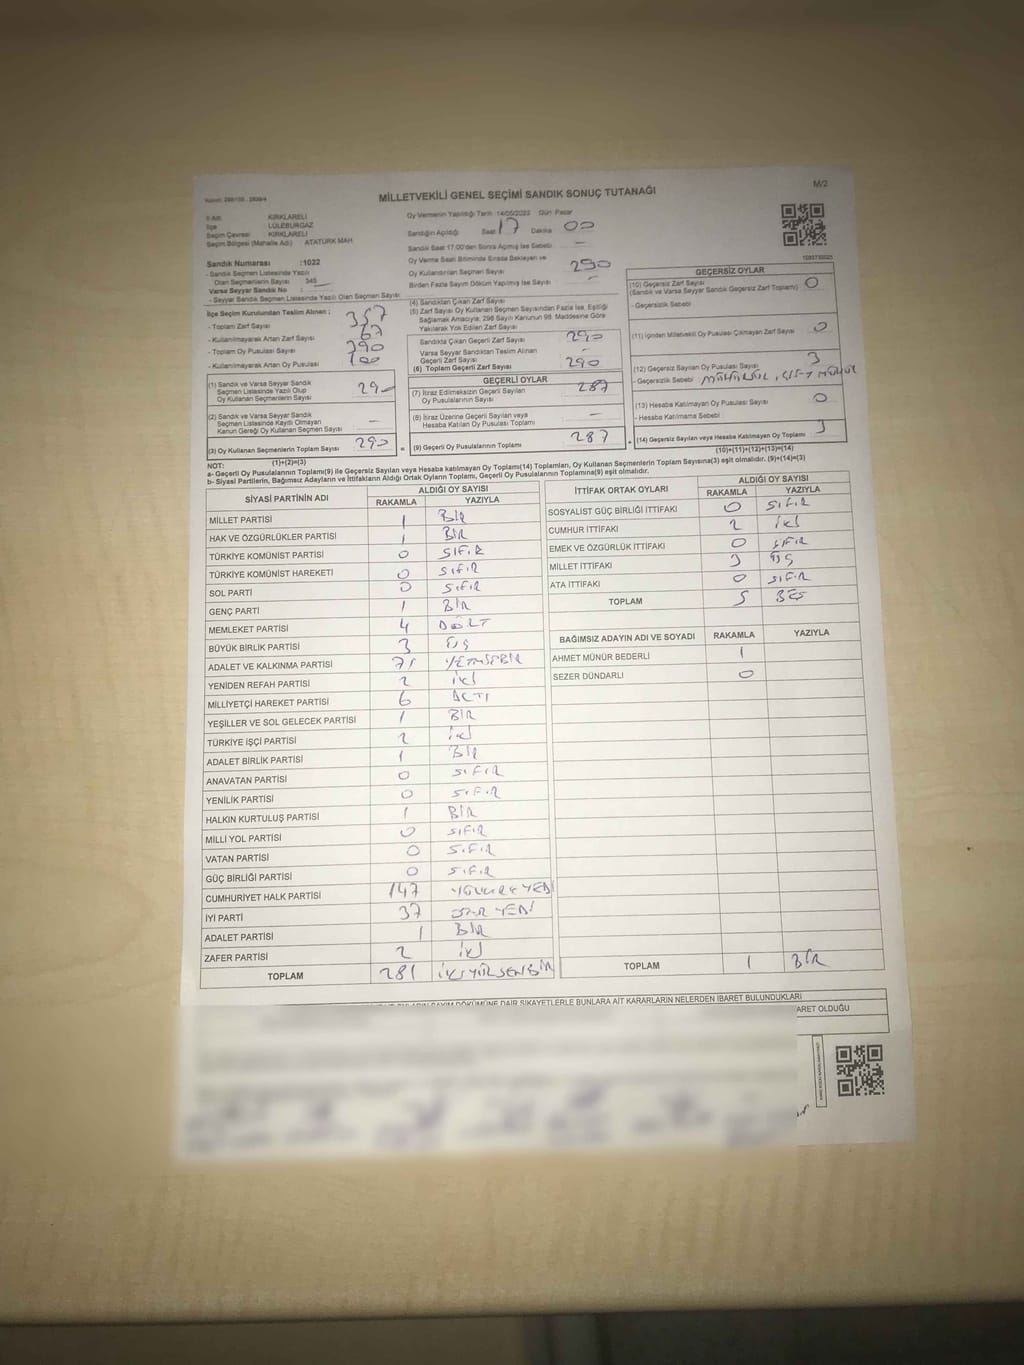 MİLLETVEKİLİ GENEL SEÇİMİ SANDIK SONUÇ TUTANAĞI
M/2
İl Adı : KIRKLARELİ
İlçe : LÜLEBURGAZ
Seçim Çevresi : KIRKLARELİ
Seçim Bölgesi (Mahalle Adı) : ATATÜRK MAH
Sandık Numarası :1022
- Sandık Seçmen Listesinde Yazılı
Olan Seçmenlerin Sayısı : 345
Varsa Seyyar Sandık No :
- Seyyar Sandık Seçmen Listesinde Yazılı Olan Seçmen Sayısı
İlçe Seçim Kurulundan Teslim Alınan ;
- Toplam Zarf Sayısı 357
- Kullanılmayarak Artan Zarf Sayısı 67
- Toplam Oy Pusulası Sayısı 390
- Kullanılmayarak Artan Oy Pusulası 100
(1) Sandık ve Varsa Seyyar Sandık
Seçmen Listesinde Yazılı Olup
Oy Kullanan Seçmenlerin Sayısı 290
(2) Sandık ve Varsa Seyyar Sandık
Seçmen Listesinde Kayıtlı Olmayan
Kanun Gereği Oy Kullanan Seçmen Sayısı —
(3) Oy Kullanan Seçmenlerin Toplam Sayısı 290
(1)+(2)=(3)
Oy Vermenin Yapıldığı Tarih :14/05/2023 Gün: Pazar
Sandığın Açıldığı Saat 17 Dakika 00
Sandık Saat 17.00'den Sonra Açılmış İse Sebebi —
Oy Verme Saati Bitiminde Sırada Bekleyen ve
Oy Kullandırılan Seçmen Sayısı 290
Birden Fazla Sayım Döküm Yapılmış İse Sayısı —
(4) Sandıktan Çıkan Zarf Sayısı
(5) Zarf Sayısı Oy Kullanan Seçmen Sayısından Fazla İse, Eşitliği
Sağlamak Amacıyla, 298 Sayılı Kanunun 98. Maddesine Göre
Yakılarak Yok Edilen Zarf Sayısı
Sandıkta Çıkan Geçerli Zarf Sayısı 290
Varsa Seyyar Sandıktan Teslim Alınan
Geçerli Zarf Sayısı —
(6) Toplam Geçerli Zarf Sayısı 290
GEÇERLİ OYLAR
(7) İtiraz Edilmeksizin Geçerli Sayılan
Oy Pusulasının Sayısı 287
(8) İtiraz Üzerine Geçerli Sayılan veya
Hesaba Katılan Oy Pusulası Toplamı —
(9) Geçerli Oy Pusulalarının Toplamı 287
GEÇERSİZ OYLAR
(10) Geçersiz Zarf Sayısı 0
(Sandık ve Varsa Seyyar Sandık Geçersiz Zarf Toplamı)
- Geçersizlik Sebebi
(11) İçinden Milletvekili Oy Pusulası Çıkmayan Zarf Sayısı 0
(12) Geçersiz Sayılan Oy Pusulası Sayısı 3
- Geçersizlik Sebebi : MÜHÜRSÜZ, ÇİFT MÜHÜR
(13) Hesaba Katılmayan Oy Pusulası Sayısı 0
- Hesaba Katılmama Sebebi :
(14) Geçersiz Sayılan veya Hesaba Katılmayan Oy Toplamı 3
(10)+(11)+(12)+(13)=(14)
NOT:
a- Geçerli Oy Pusulalarının Toplamı(9) ile Geçersiz Sayılan veya Hesaba katılmayan Oy Toplamı(14) Toplamları, Oy Kullanan Seçmenlerin Toplam Sayısına(3) eşit olmalıdır. (9)+(14)=(3)
b- Siyasi Partilerin, Bağımsız Adayların ve İttifakların Aldığı Ortak Oyların Toplamı, Geçerli Oy Pusulalarının Toplamına(9) eşit olmalıdır.
SİYASİ PARTİNİN ADI ALDIĞI OY SAYISI
RAKAMLA YAZIYLA
MİLLET PARTİSİ 1 BİR
HAK VE ÖZGÜRLÜKLER PARTİSİ 1 BİR
TÜRKİYE KOMÜNİST PARTİSİ 0 SIFIR
TÜRKİYE KOMÜNİST HAREKETİ 0 SIFIR
SOL PARTİ 0 SIFIR
GENÇ PARTİ 1 BİR
MEMLEKET PARTİSİ 4 DÖRT
BÜYÜK BİRLİK PARTİSİ 3 ÜÇ
ADALET VE KALKINMA PARTİSİ 71 YETMİŞBİR
YENİDEN REFAH PARTİSİ 2 İKİ
MİLLİYETÇİ HAREKET PARTİSİ 6 ALTI
YEŞİLLER VE SOL GELECEK PARTİSİ 1 BİR
TÜRKİYE İŞÇİ PARTİSİ 2 İKİ
ADALET BİRLİK PARTİSİ 1 BİR
ANAVATAN PARTİSİ 0 SIFIR
YENİLİK PARTİSİ 0 SIFIR
HALKIN KURTULUŞ PARTİSİ 1 BİR
MİLLİ YOL PARTİSİ 0 SIFIR
VATAN PARTİSİ 0 SIFIR
GÜÇ BİRLİĞİ PARTİSİ 0 SIFIR
CUMHURİYET HALK PARTİSİ 147
İYİ PARTİ 37 OTUZ YEDİ
ADALET PARTİSİ 1 BİR
ZAFER PARTİSİ 2 İKİ
TOPLAM 281 İKİYÜZSEKSENBİR
İTTİFAK ORTAK OYLARI ALDIĞI OY SAYISI
RAKAMLA YAZIYLA
SOSYALİST GÜÇ BİRLİĞİ İTTİFAKI 0 SIFIR
CUMHUR İTTİFAKI 2 İKİ
EMEK VE ÖZGÜRLÜK İTTİFAKI 0 SIFIR
MİLLET İTTİFAKI 3 ÜÇ
ATA İTTİFAKI 0 SIFIR
TOPLAM 5 BEŞ
BAĞIMSIZ ADAYIN ADI VE SOYADI RAKAMLA YAZIYLA
AHMET MÜNÜR BEDERLİ 1
SEZER DÜNDARLI 0
TOPLAM 1 BİR
SAYIM DÖKÜMÜNE DAİR ŞİKAYETLERLE BUNLARA AİT KARARLARIN NELERDEN İBARET BULUNDUKLARI
ARET OLDUĞU